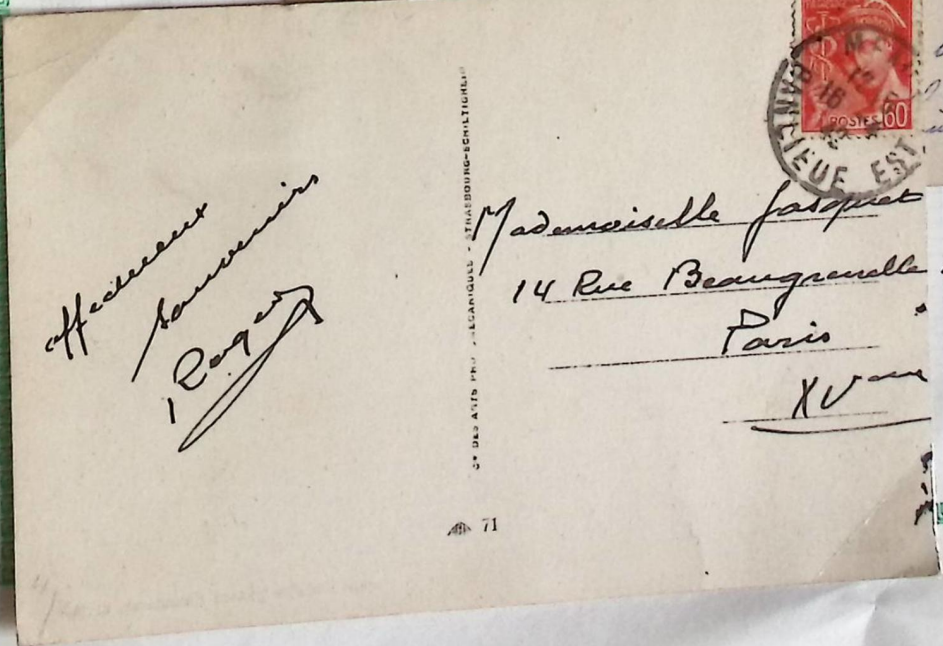 affectueux
souvenirs
Roger
Cie DES ARTS PHOTOMÉCANIQUES - STRASBOURG-SCHILTIGHEIM
71
POSTES 60
BANLIEUE EST
Mademoiselle Jasquet
14 Rue Beaugrenelle
Paris
XVeme